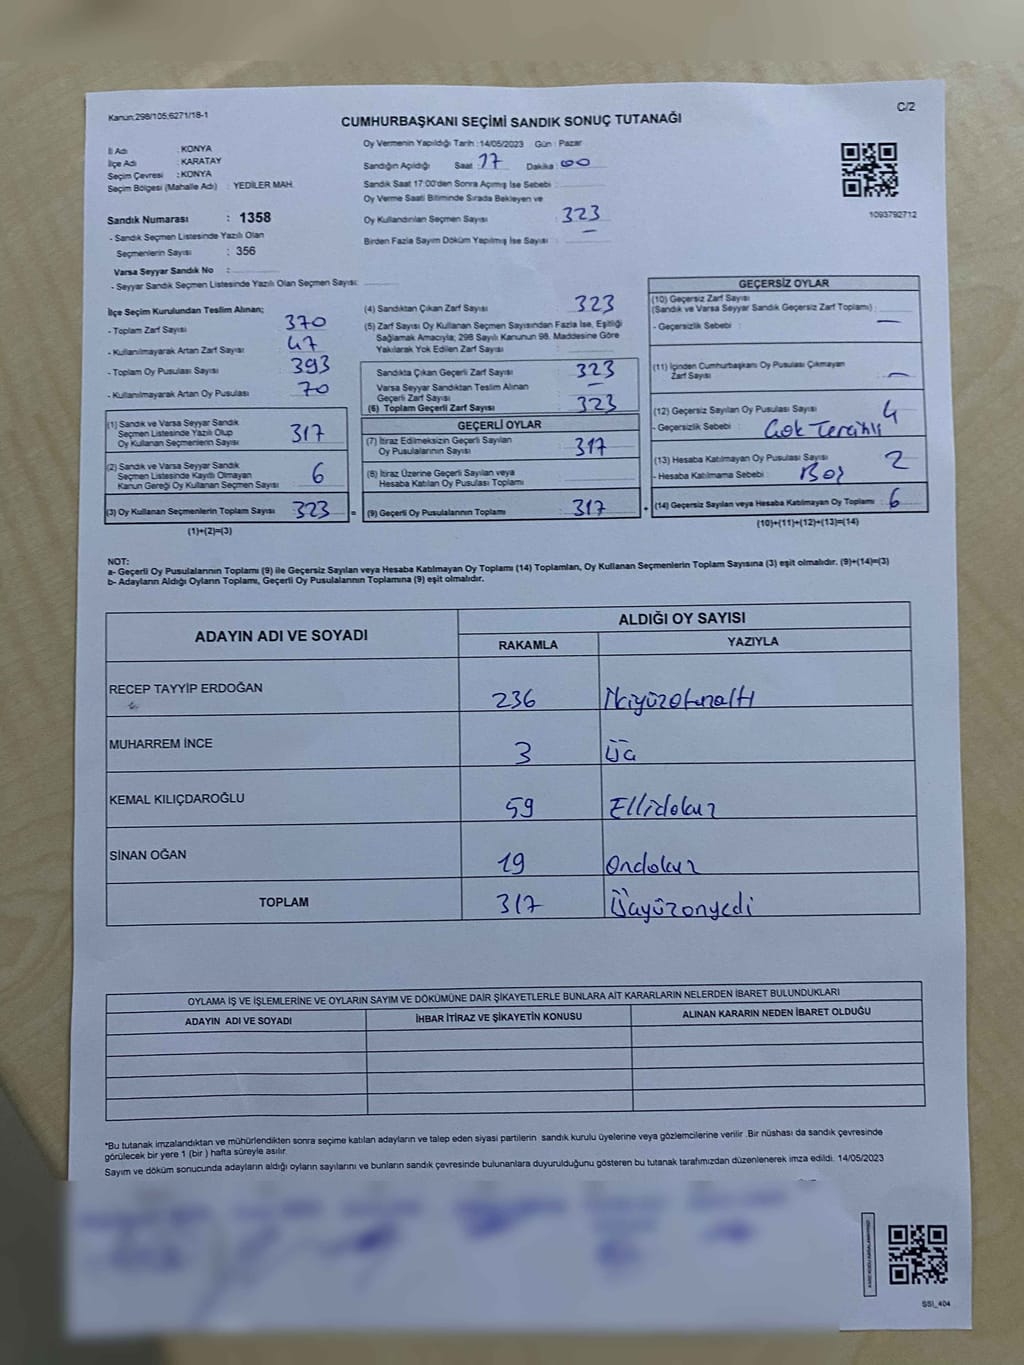 Kanun;298/105;6271/18-1
C/2
CUMHURBAŞKANI SEÇİMİ SANDIK SONUÇ TUTANAĞI
İl Adı : KONYA
İlçe Adı : KARATAY
Seçim Çevresi : KONYA
Seçim Bölgesi (Mahalle Adı) : YEDİLER MAH.
Sandık Numarası : 1358
- Sandık Seçmen Listesinde Yazılı Olan
Seçmenlerin Sayısı : 356
Varsa Seyyar Sandık No :
- Seyyar Sandık Seçmen Listesinde Yazılı Olan Seçmen Sayısı:
Oy Vermenin Yapıldığı Tarih : 14/05/2023 Gün : Pazar
Sandığın Açıldığı Saat : 17 Dakika : 00
Sandık Saat 17:00'den Sonra Açımış İse Sebebi :
Oy Verme Saati Bitiminde Sırada Bekleyen ve
Oy Kullandırılan Seçmen Sayısı : 323
Birden Fazla Sayım Döküm Yapılmış İse Sayısı : —
1093792712
İlçe Seçim Kurulundan Teslim Alınan;
- Toplam Zarf Sayısı 370
- Kullanılmayarak Artan Zarf Sayısı 47
- Toplam Oy Pusulası Sayısı 393
- Kullanılmayarak Artan Oy Pusulası 70
(1) Sandık ve Varsa Seyyar Sandık
Seçmen Listesinde Yazılı Olup
Oy Kullanan Seçmenlerin Sayısı 317
(2) Sandık ve Varsa Seyyar Sandık
Seçmen Listesinde Kayıtlı Olmayan
Kanun Gereği Oy Kullanan Seçmen Sayısı 6
(3) Oy Kullanan Seçmenlerin Toplam Sayısı 323 =
(1)+(2)=(3)
(4) Sandıktan Çıkan Zarf Sayısı 323
(5) Zarf Sayısı Oy Kullanan Seçmen Sayısından Fazla İse, Eşitliği
Sağlamak Amacıyla; 298 Sayılı Kanunun 98. Maddesine Göre
Yakılarak Yok Edilen Zarf Sayısı :
Sandıkta Çıkan Geçerli Zarf Sayısı 323
Varsa Seyyar Sandıktan Teslim Alınan
Geçerli Zarf Sayısı —
(6) Toplam Geçerli Zarf Sayısı 323
GEÇERLİ OYLAR
(7) İtiraz Edilmeksizin Geçerli Sayılan
Oy Pusulalarının Sayısı 317
(8) İtiraz Üzerine Geçerli Sayılan veya
Hesaba Katılan Oy Pusulası Toplamı
(9) Geçerli Oy Pusulalarının Toplamı 317 +
GEÇERSİZ OYLAR
(10) Geçersiz Zarf Sayısı
(Sandık ve Varsa Seyyar Sandık Geçersiz Zarf Toplamı) :
- Geçersizlik Sebebi : —
(11) İçinden Cumhurbaşkanı Oy Pusulası Çıkmayan
Zarf Sayısı —
(12) Geçersiz Sayılan Oy Pusulası Sayısı 4
- Geçersizlik Sebebi : Çok Tercihli
(13) Hesaba Katılmayan Oy Pusulası Sayısı 2
- Hesaba Katılmama Sebebi : Boş
(14) Geçersiz Sayılan veya Hesaba Katılmayan Oy Toplamı 6
(10)+(11)+(12)+(13)=(14)
NOT:
a- Geçerli Oy Pusulalarının Toplamı (9) ile Geçersiz Sayılan veya Hesaba Katılmayan Oy Toplamı (14) Toplamları, Oy Kullanan Seçmenlerin Toplam Sayısına (3) eşit olmalıdır. (9)+(14)=(3)
b- Adayların Aldığı Oyların Toplamı, Geçerli Oy Pusulalarının Toplamına (9) eşit olmalıdır.
ADAYIN ADI VE SOYADI ALDIĞI OY SAYISI
RAKAMLA YAZIYLA
RECEP TAYYİP ERDOĞAN 236 İkiyüzotuzaltı
MUHARREM İNCE 3 Üç
KEMAL KILIÇDAROĞLU 59 Ellidokuz
SİNAN OĞAN 19 Ondokuz
TOPLAM 317 Üçyüzonyedi
OYLAMA İŞ VE İŞLEMLERİNE VE OYLARIN SAYIM VE DÖKÜMÜNE DAİR ŞİKAYETLERLE BUNLARA AİT KARARLARIN NELERDEN İBARET BULUNDUKLARI
ADAYIN ADI VE SOYADI İHBAR İTİRAZ VE ŞİKAYETİN KONUSU ALINAN KARARIN NEDEN İBARET OLDUĞU
*Bu tutanak imzalandıktan ve mühürlendikten sonra seçime katılan adayların ve talep eden siyasi partilerin sandık kurulu üyelerine veya gözlemcilerine verilir. Bir nüshası da sandık çevresinde
görülecek bir yere 1 (bir ) hafta süreyle asılır.
Sayım ve döküm sonucunda adayların aldığı oyların sayılarını ve bunların sandık çevresinde bulunanlara duyurulduğunu gösteren bu tutanak tarafımızdan düzenlenerek imza edildi. 14/05/2023
SSI_404